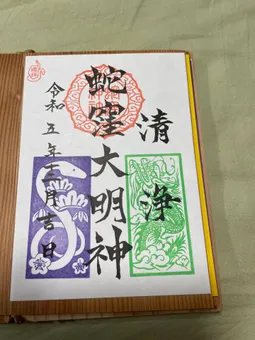 清浄
蛇窪大明神
令和五年二月吉日